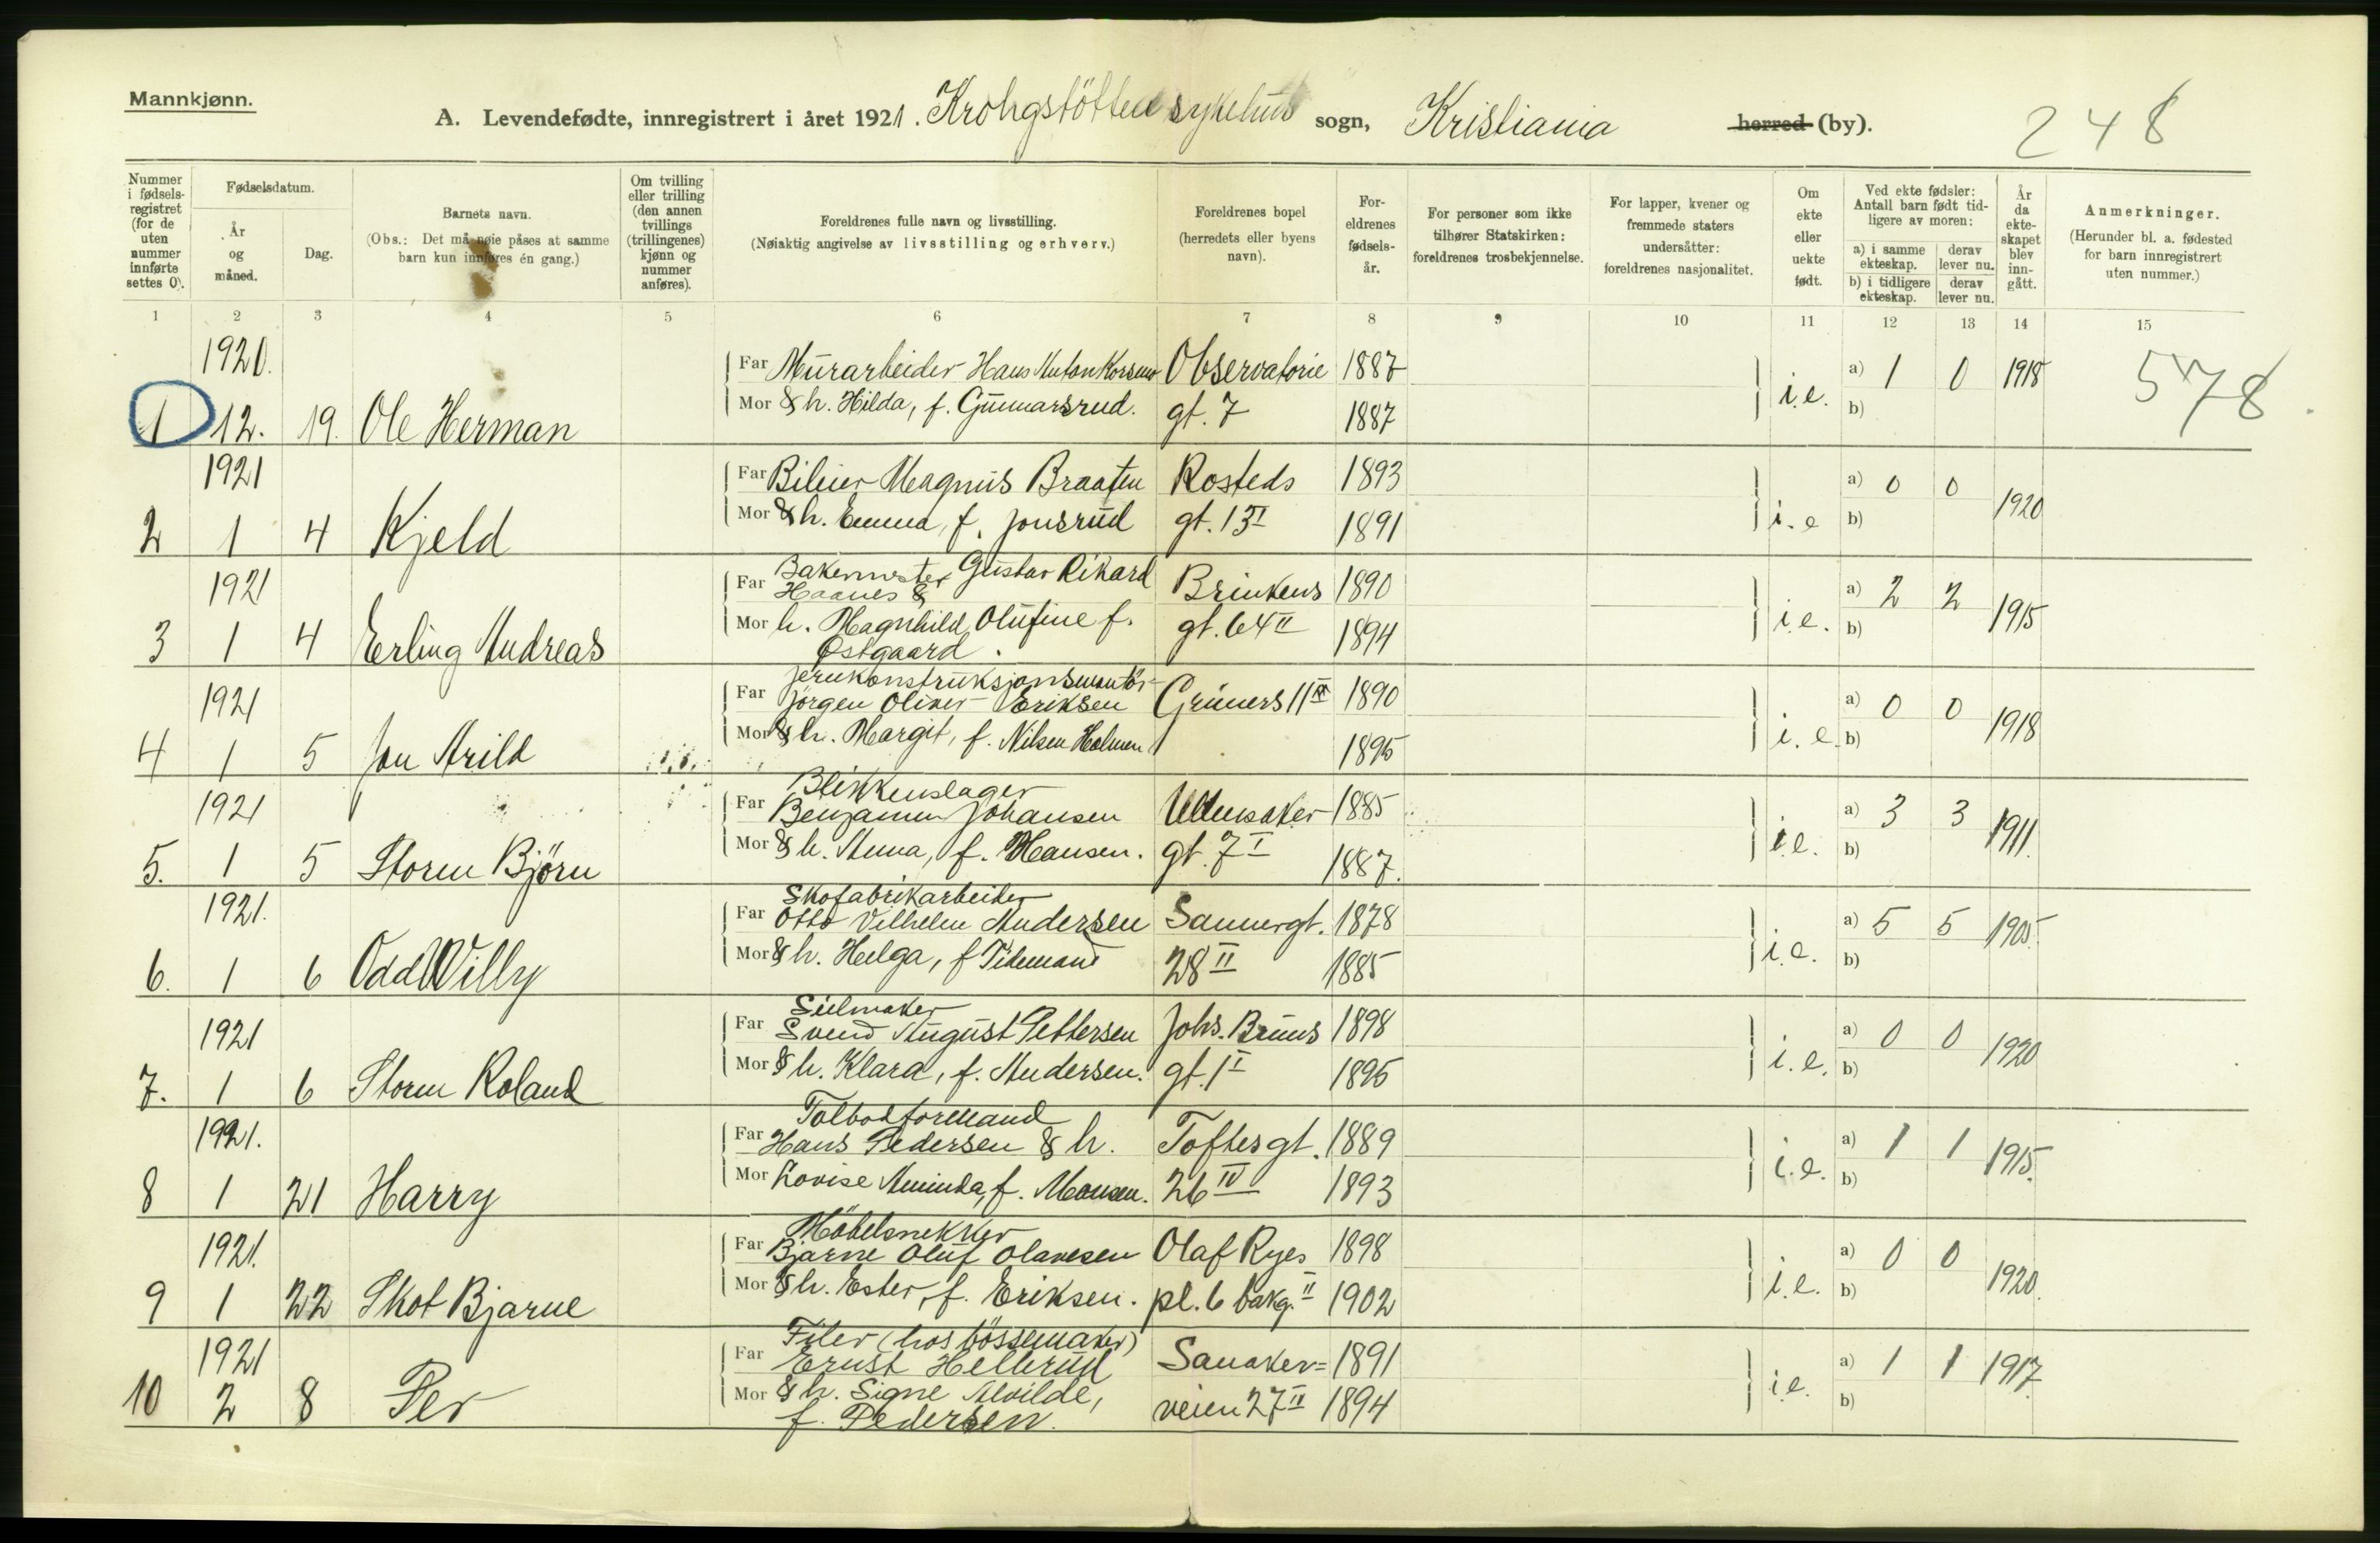 Mannkjønn.
A. Levendefødte, innregistrert i året 1921. Krohgstötten sykehus sogn, Kristiania herred (by).
248
Nummer i fødsels-registret (for de uten nummer innførte settes 0).
Fødselsdatum.
År og måned.
Dag.
Barnets navn.
(Obs.: Det må nøie påses at samme barn kun innføres én gang.)
Om tvilling eller trilling (den annen tvillings (trillingenes) kjønn og nummer anføres).
Foreldrenes fulle navn og livsstilling.
(Nøiaktig angivelse av livsstilling og erhverv.)
Foreldrenes bopel (herredets eller byens navn).
For-eldrenes fødsels-år.
For personer som ikke tilhører Statskirken: foreldrenes trosbekjennelse.
For lapper, kvener og fremmede staters undersåtter: foreldrenes nasjonalitet.
Om ekte eller uekte født.
Ved ekte fødsler: Antall barn født tid-ligere av moren:
a) i samme ekteskap.
derav lever nu.
b) i tidligere ekteskap.
derav lever nu.
År da ekte-skapet blev inn-gått.
Anmerkninger.
(Herunder bl. a. fødested for barn innregistrert uten nummer.)
1 2 3 4 5 6 7 8 9 10 11 12 13 14 15
1920.
Far Murarbeider Hans Anton Korsmo Observatorie 1887
a) 1 0 1918
578
1 12. 19. Ole Herman
Mor & h. Hilda, f. Gunnarsrud. gt. 7 1887 i.e. b)
1921
Far Bileier Magnus Braaten Rosteds 1893
a) 0 0 1920
2 1 4 Kjeld
Mor & h. Emma, f. Jonsrud gt. 13 I 1891 i.e b)
1921
Far Bakermester Gustav Rikard Haanes & Brinkens 1890
a) 2 2 1915
3 1 4 Erling Andreas
Mor h. Magnhild Olufine f. Østgaard. gt. 64 II 1894 i.e. b)
1921
Far Jernkonstruksjonsmontör Jörgen Oliver Eriksen Grüners 11 1890
a) 0 0 1918
4 1 5 Jon Arild
Mor & h. Margit, f. Nilsen Holmen 1895 i.e. b)
1921
Far Blikkenslager Benjamin Johansen Ullensaker 1885
a) 3 3 1911.
5. 1 5 Storm Björn
Mor & h. Anna, f. Hansen. gt. 7 I 1887. i.e. b)
1921.
Far Skofabrikarbeider Otto Vilhelm Andersen Sannergt. 1878
a) 5 5 1905.
6. 1 6 Odd Willy
Mor & h. Helga, f Tidemand 28 II 1885 i.e. b)
1921
Far Seilmaker Svend August Pettersen Johs. Bruns 1898
a) 0 0 1920
7. 1 6 Storm Roland
Mor & h. Klara, f. Andersen. gt. 1 I 1895 i.e. b)
1921.
Far Tolbodformand Hans Pedersen & h. Toftesgt. 1889
a) 1 1 1915.
8 1 21 Harry
Mor Lovise Aminda, f. Monsen. 26 IV 1893 i.e. b)
1921.
Far Möbelsnekker Bjarne Oluf Olavesen Olaf Ryes 1898
a) 0 0 1920.
9 1 22 Skot Bjarne
Mor & h. Ester, f. Eriksen. pl. 6 bakg. II 1902 i.e. b)
1921
Far Filer (hos bössemaker) Ernst Hellerud Sanaker= 1891
a) 1 1 1917
10 2 8 Per
Mor & h. Signe Alvilde, f. Pedersen. veien 27 II 1894 i.e. b)